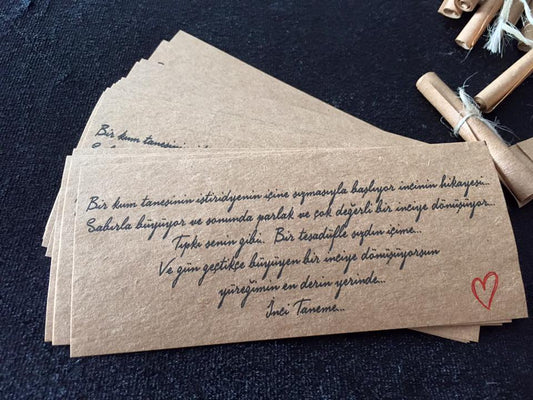 Bir kum tanesini
Bir kum tanesinin istiridyenin içine sızmasıyla başlıyor incinin hikayesi...
Sabırla büyüyor ve sonunda parlak ve çok değerli bir inciye dönüşüyor...
Tıpkı senin gibi.. Bir tesadüfle sızdın içime...
Ve gün geçtikçe büyüyen bir inciye dönüşüyorsun
yüreğimin en derin yerinde...
İnci Taneme...